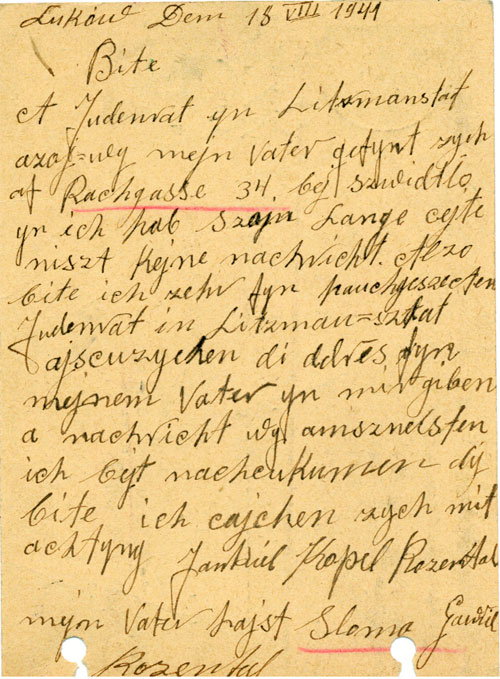 Łuków Dem 18 VIII 1941
Bite
A Judenrat yn Litzmanstat
azoj=wy mejn Vater gefynt zych
af Rachgasse 34. bej szwidtlo
yn ich hab szojn Lange cejt
niszt Kejne nachricht. Alzo
bite ich zehr fyn hauchgeszecten
Judenrat in Litzman=sztat
ajscuzychen di adres fyn
mejnem Vater yn mir giben
a nachricht wy amsznelsten
ich bejt nachcukumen dy
bite ich cajchen zych mit
achtyng Jankiel Kopel Rozental
mejn Vater hajst Sloma Gawriel
Rozental